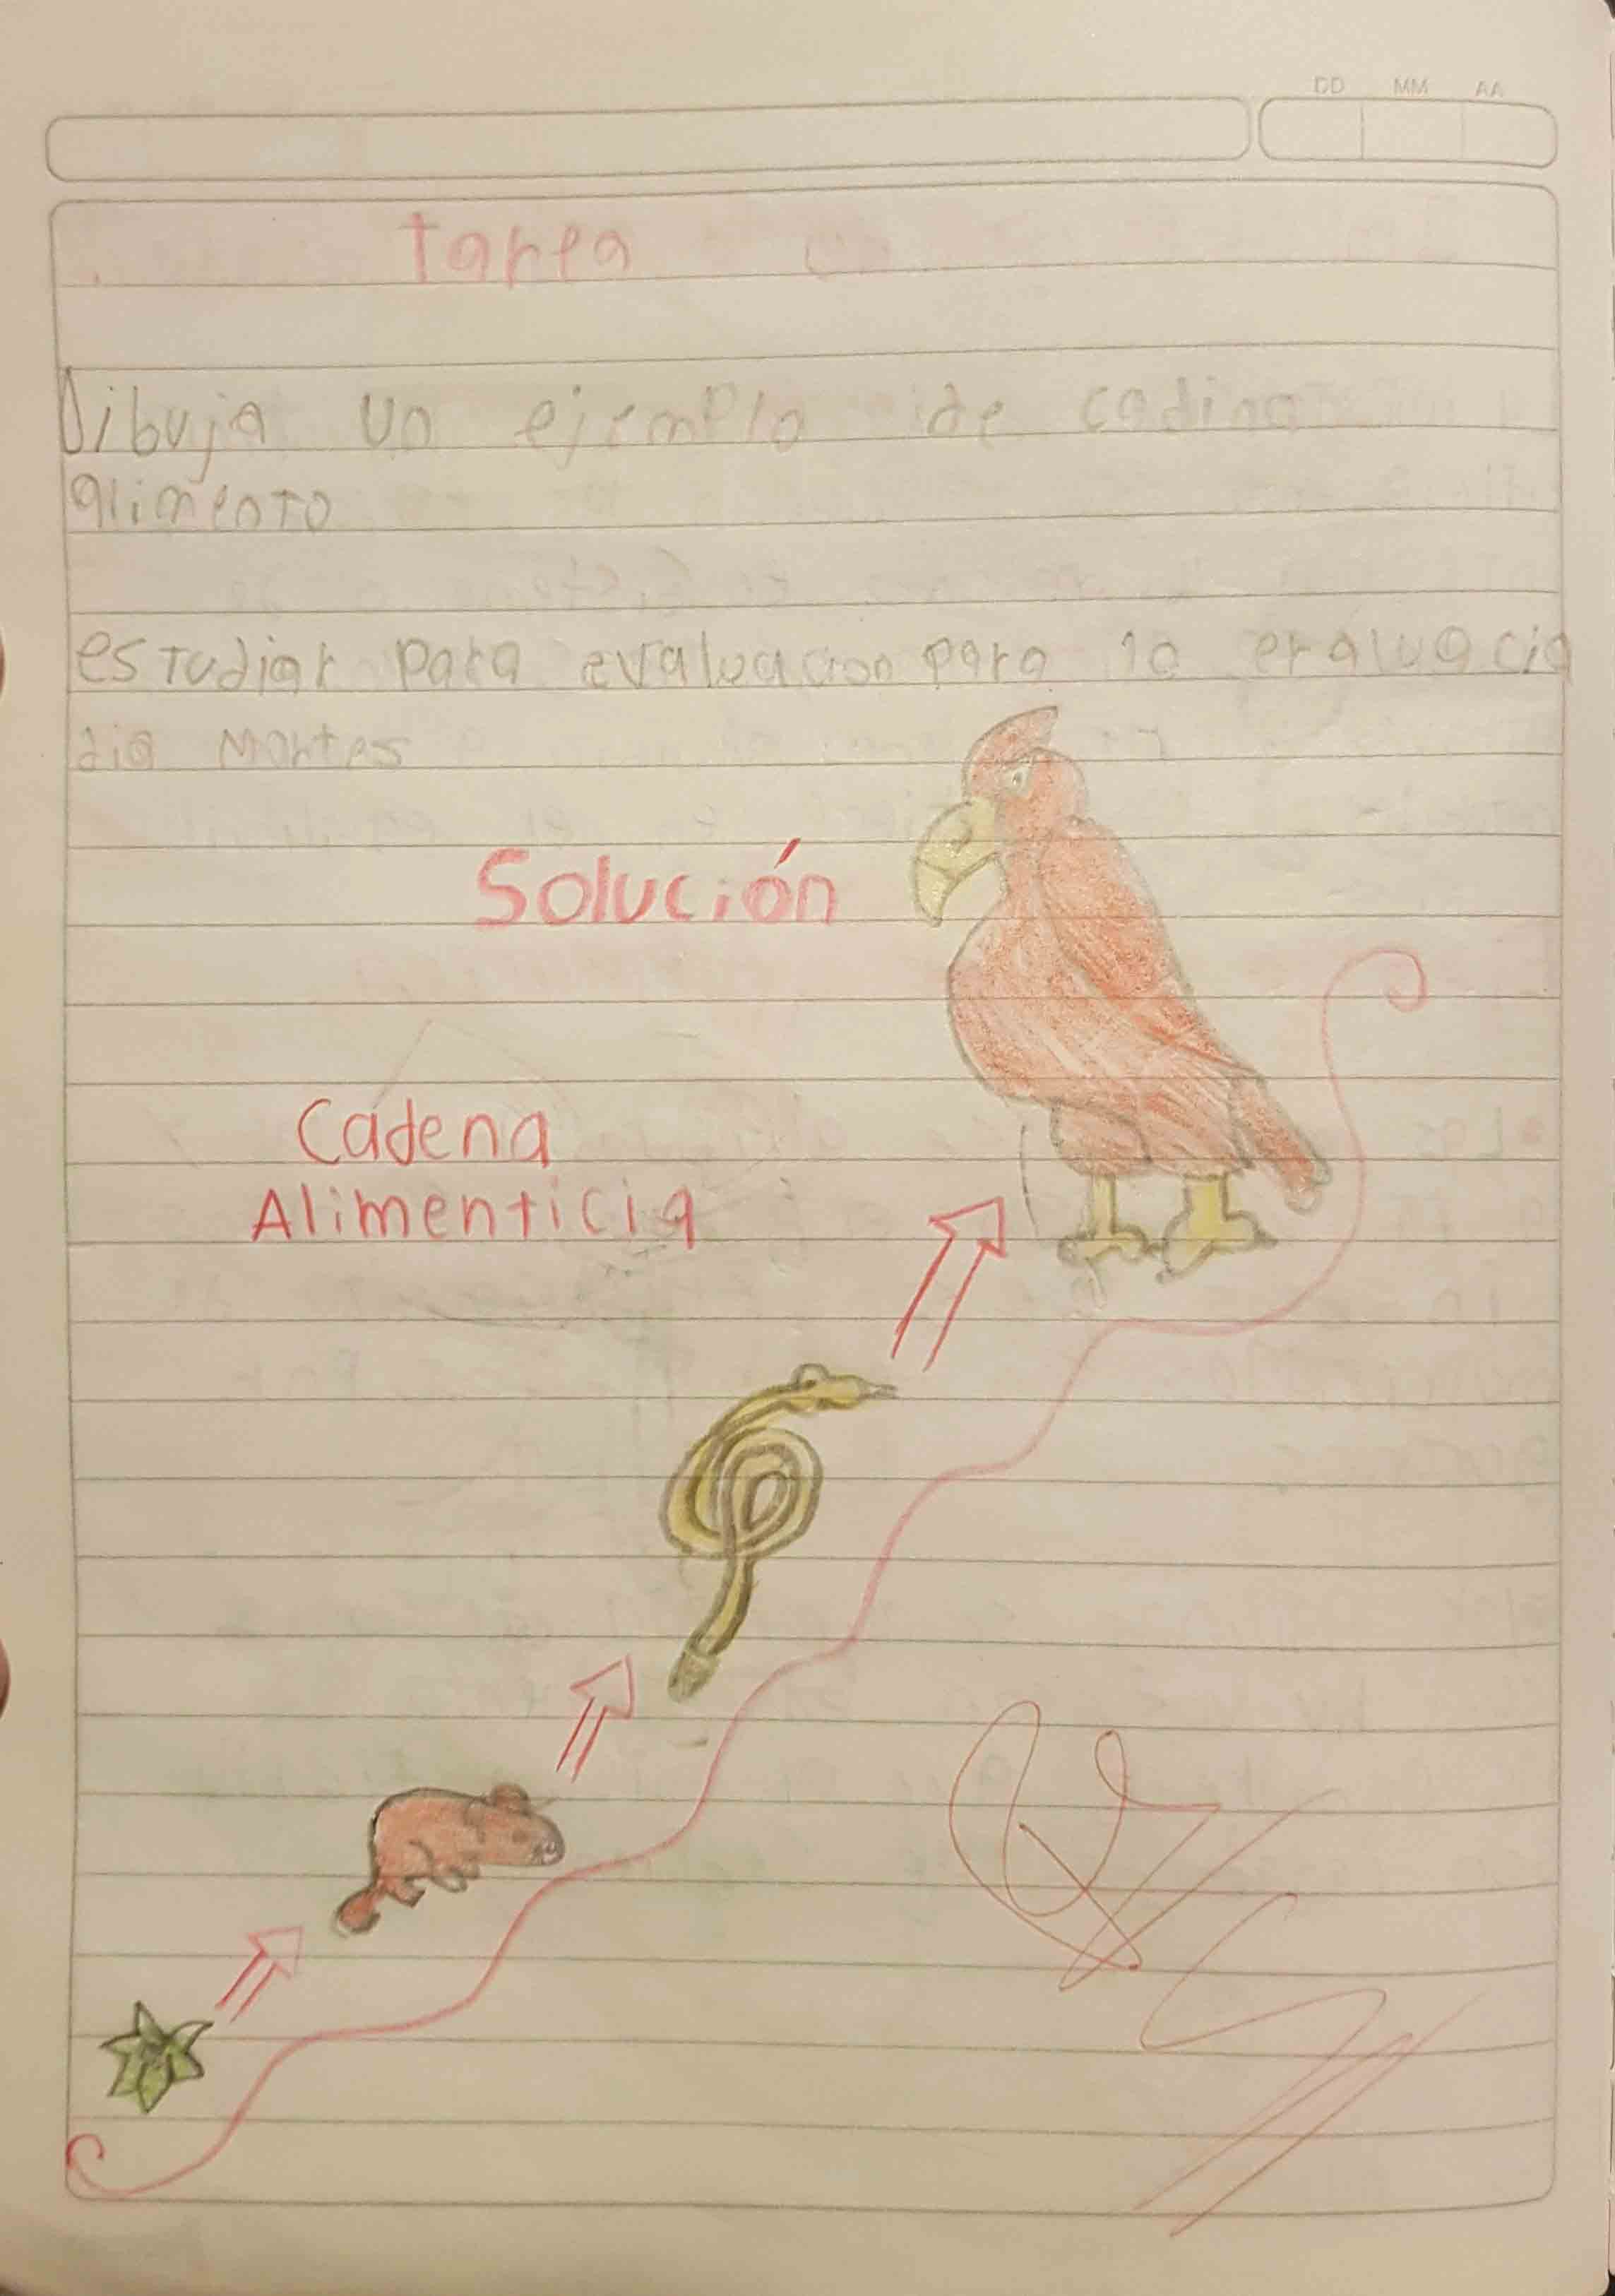 DD MM AA
tarea
Dibuja un ejemplo de cadina
alimento
estudiar para evaluacion para la evaluacia
dia Martes
Solución
Cadena
Alimenticia